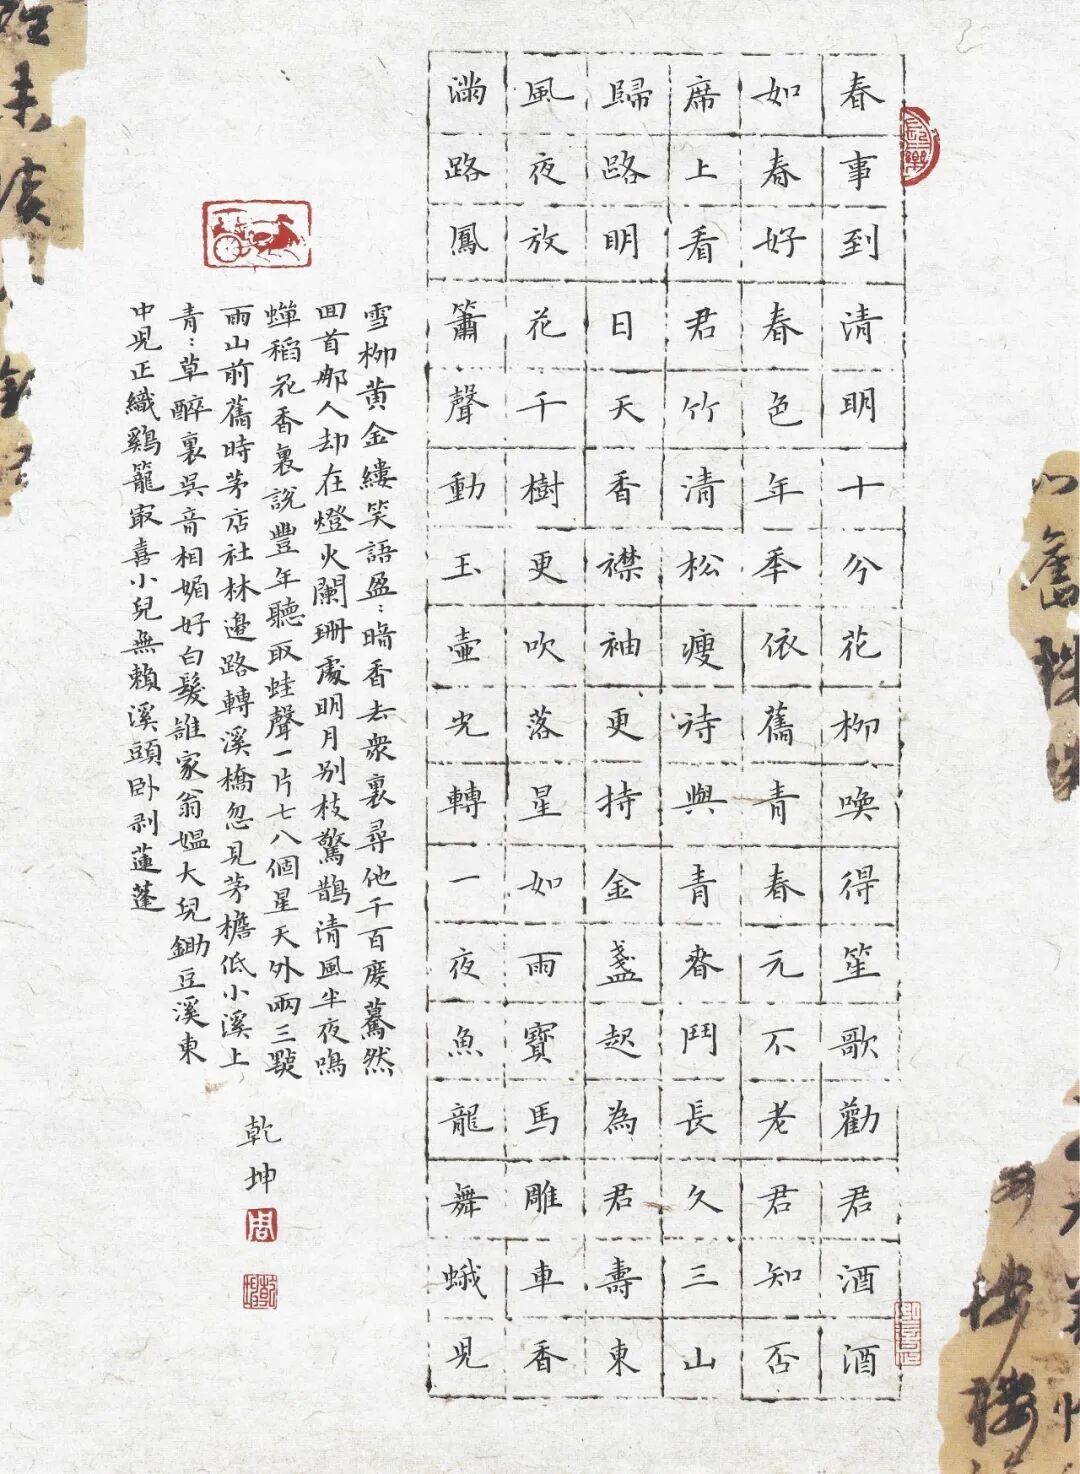 春事到清明十分花柳喚得笙歌勸君酒酒
如春好春色年年依舊青春元不老君知否
席上看君竹清松瘦待與青春鬥長久三山
歸路明日天香襟袖更持金盞起為君壽東
風夜放花千樹更吹落星如雨寶馬雕車香
滿路鳳簫聲動玉壺光轉一夜魚龍舞蛾兒
雪柳黃金縷笑語盈：暗香去衆裏尋他千百度驀然
回首那人却在燈火闌珊處明月别枝驚鵲清風半夜鳴
蟬稻花香裏說豐年聽取蛙聲一片七八個星天外兩三點
雨山前舊時茅店社林邊路轉溪橋忽見茅檐低小溪上
青：草醉裏吳音相媚好白髮誰家翁媼大兒鋤豆溪東
中兒正織鷄籠最喜小兒無賴溪頭卧剥蓮蓬
乾坤
周
乾坤